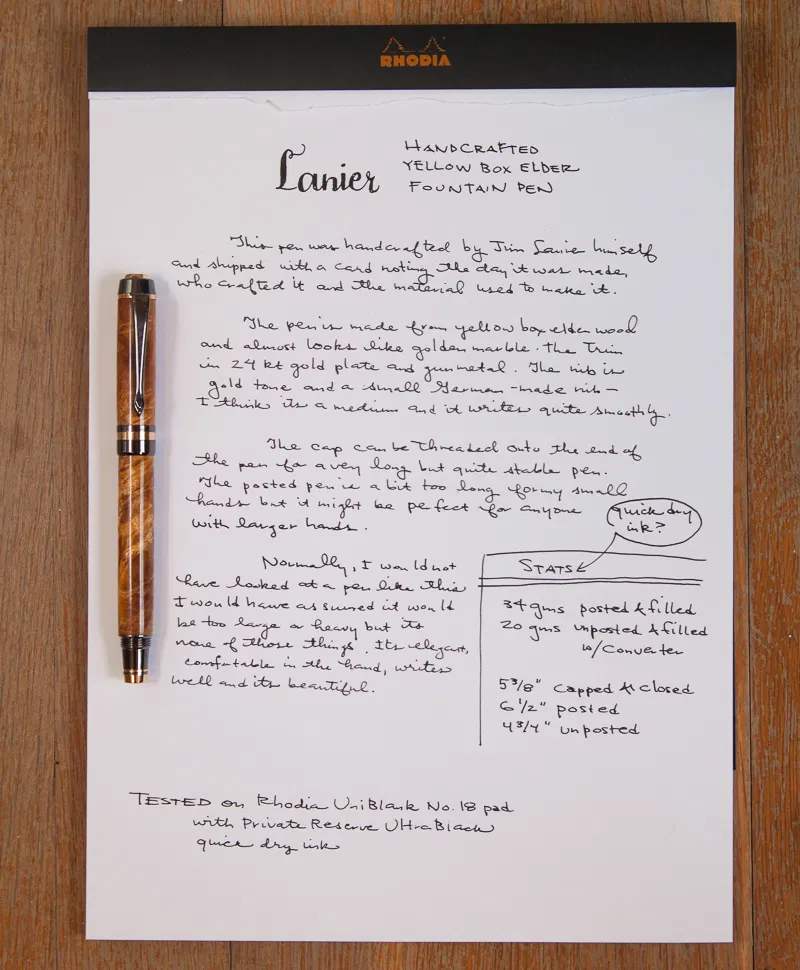 RHODIA
Lanier
HANDCRAFTED
YELLOW BOX ELDER
FOUNTAIN PEN
This pen was handcrafted by Jim Lanier himself
and shipped with a card noting the day it was made,
who crafted it and the material used to make it.
The pen is made from yellow box elder wood
and almost looks like golden marble. The trim
is 24 kt gold plate and gunmetal. The nib is
gold tone and a small German-made nib—
I think its a medium and it writes quite smoothly.
The cap can be threaded onto the end of
the pen for a very long but quite stable pen.
The posted pen is a bit too long for my small
hands but it might be perfect for anyone
with larger hands.
Normally, I would not
have looked at a pen like this
I would have assumed it would
be too large or heavy but its
none of those things. Its elegant,
comfortable in the hand, writes
well and its beautiful.
quick dry
ink?
STATS
34 gms posted & filled
20 gms unposted & filled
w/Converter
5 3/8" capped & closed
6 1/2" posted
4 3/4" unposted
TESTED on Rhodia UniBlank No. 18 pad
with Private Reserve UltraBlack
quick dry ink